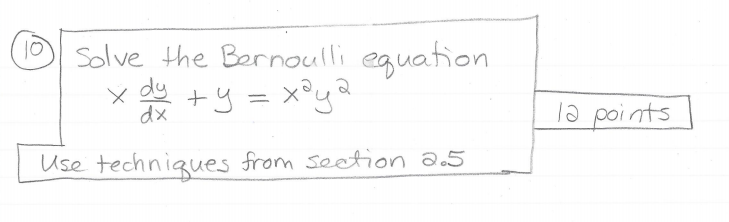 10 Solve the Bernoulli equation
x dy/dx + y = x²y²
12 points
Use techniques from section 2.5